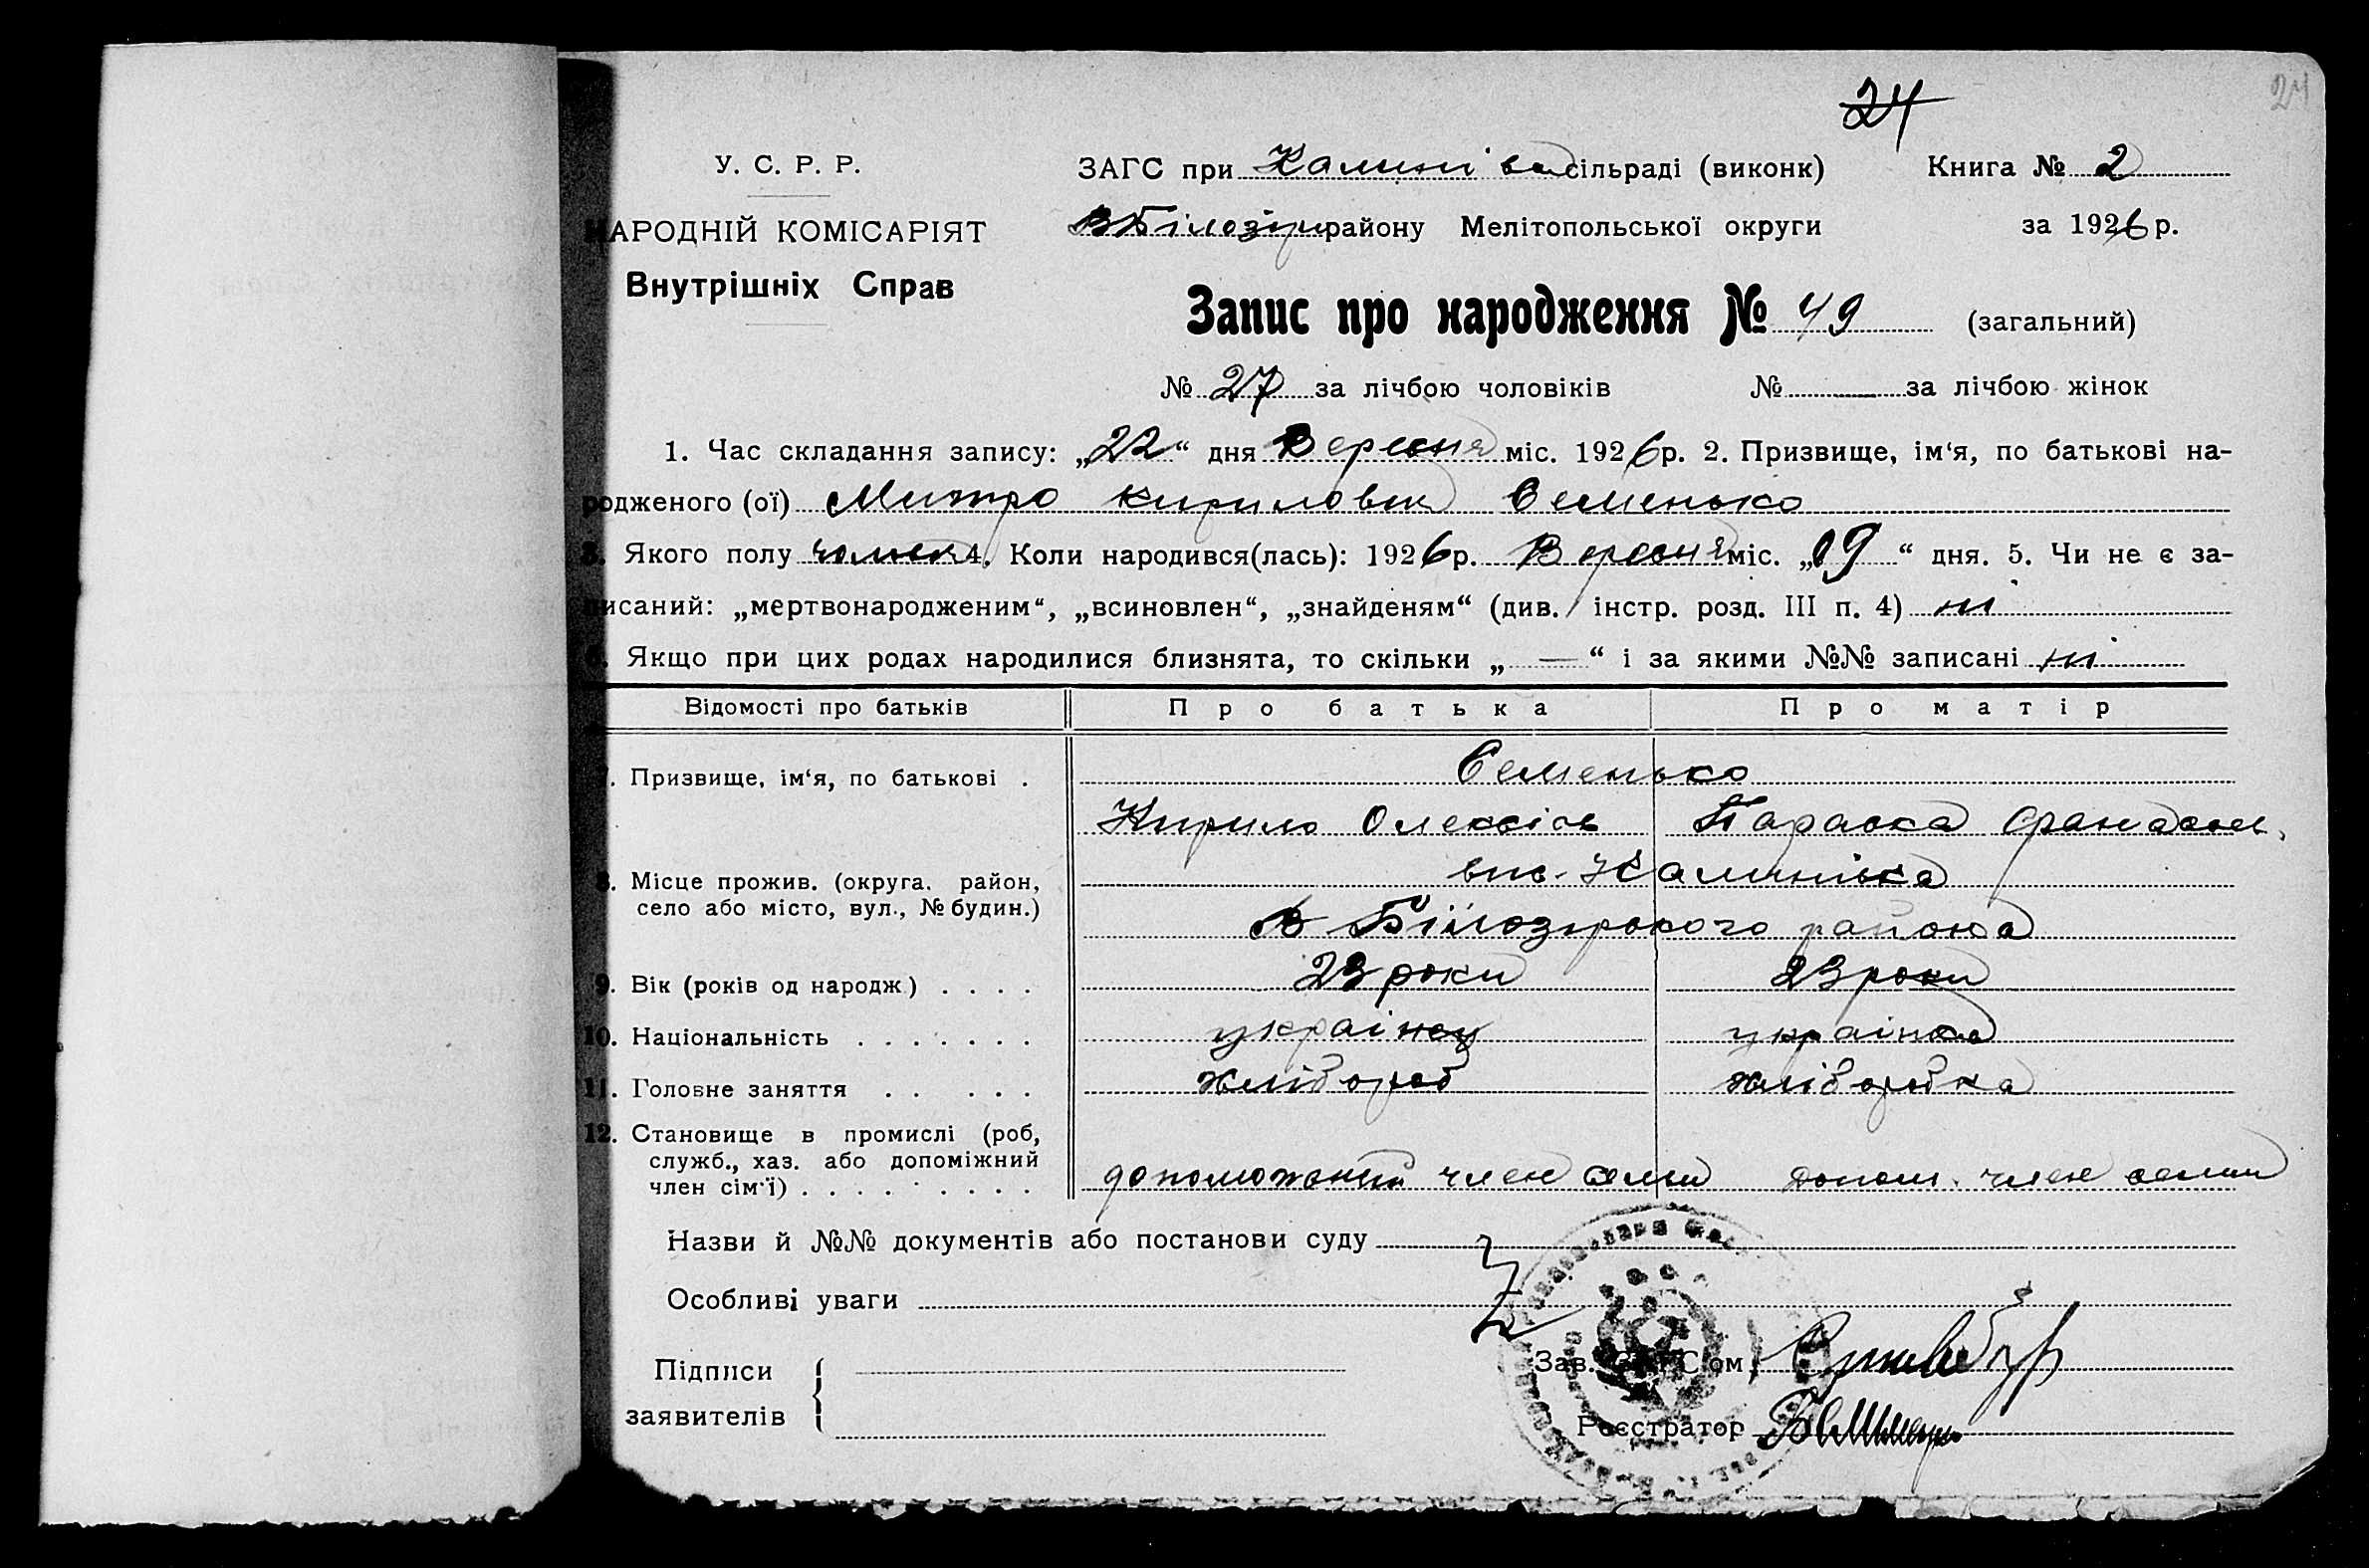 24
24
У. С. Р. Р.
НАРОДНІЙ КОМІСАРІЯТ
Внутрішніх Справ
ЗАГС при Калинівс сільраді (виконк) Книга № 2
В Білозірк району Мелітопольської округи за 1926 р.
Запис про народження № 49 (загальний)
№ 27 за лічбою чоловіків № — за лічбою жінок
1. Час складання запису: „22“ дня Вересня міс. 1926 р. 2. Призвище, ім‘я, по батькові на-
родженого (ої) Митро Кирилович Семенько
3. Якого полу чолов 4. Коли народився(лась): 1926 р. Вересня міс. „19“ дня. 5. Чи не є за-
писаний: „мертвонародженим“, „всиновлен“, „знайденям“ (див. інстр. розд. III п. 4) ні
6. Якщо при цих родах народилися близнята, то скільки „ — “ і за якими №№ записані ні
Відомості про батьків Про батька Про матір
7. Призвище, ім‘я, по батькові . Семенько
Кирило Олексієв Параска
8. Місце прожив. (округа, район, вис. Калинівка
село або місто, вул., № будин.) В Білозірського району
9. Вік (років од народж.) . . . . 23 роки 23 роки
10. Національність . . . . . . . українец українка
11. Головне заняття . . . . . хлібороб хлібробка
12. Становище в промислі (роб,
служб., хаз. або допоміжний
член сім‘ї) . . . . . . . . . допоможний член семьи допом. член семьи
Назви й №№ документів або постанови суду
Особливі уваги
Підписи
заявителів
Зав. ЗАГСом
Реєстратор